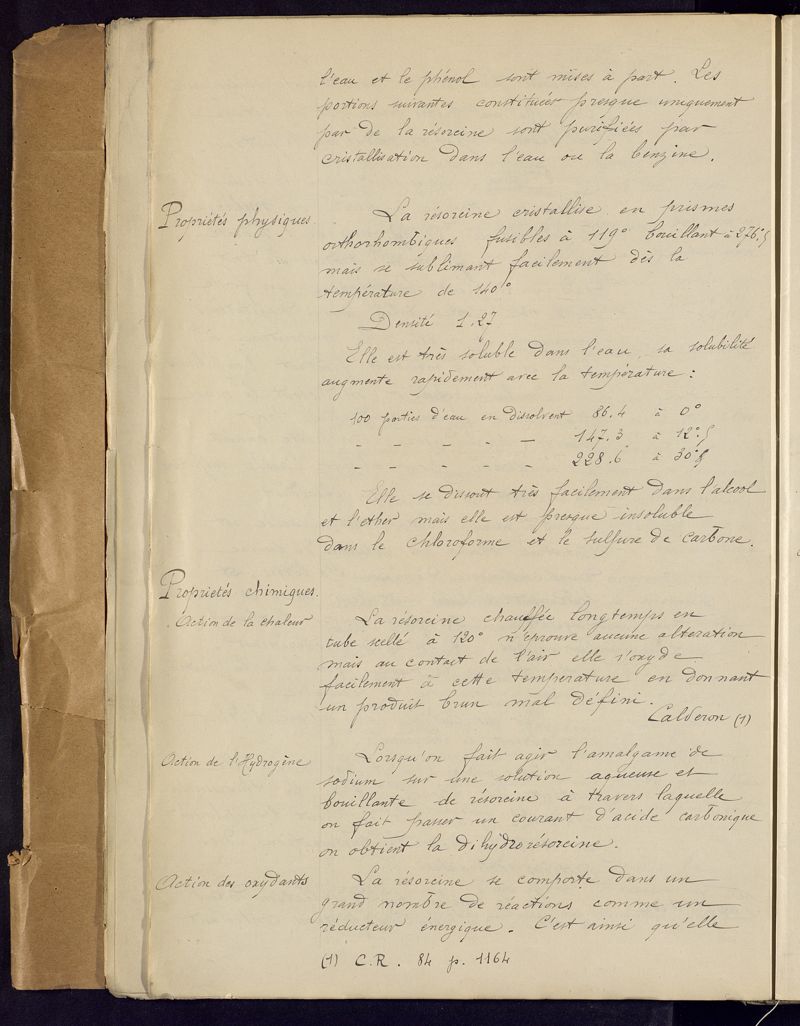 l'eau et le phénol sont mises à part. Les
portions suivantes constituées presque uniquement
par de la résorcine sont purifiées par
cristallisation dans l'eau ou la benzine.
Propriétés physiques.
La résorcine cristallise en prismes
orthorhombiques fusibles à 119° bouillant à 276°,5
mais se sublimant facilement dès la
température de 140°
Densité 1.27
Elle est très soluble dans l'eau, sa solubilité
augmente rapidement avec la température :
100 parties d'eau en dissolvent 86.4 à 0°
_ _ _ _ _ 147.3 à 12°.5
_ _ _ _ _ 228.6 à 30°.5
Elle se dissout très facilement dans l'alcool
et l'ether mais elle est presque insoluble
dans le chloroforme et le sulfure de carbone.
Proprietés chimiques.
. Action de la chaleur
La résorcine chauffée longtemps en
tube scellé à 120° n'éprouve aucune alteration
mais au contact de l'air elle s'oxyde
facilement à cette temperature en donnant
un produit brun mal défini.
Calderon (1)
Action de l'Hydrogène
Lorsqu'on fait agir l'amalgame de
sodium sur une solution aqueuse et
bouillante de résorcine à travers laquelle
on fait passer un courant d'acide carbonique
on obtient la dihydrorésorcine.
Action des oxydants
La résorcine se comporte dans un
grand nombre de réactions comme un
réducteur énergique. C'est ainsi qu'elle
(1) C.R. 84 p. 1164